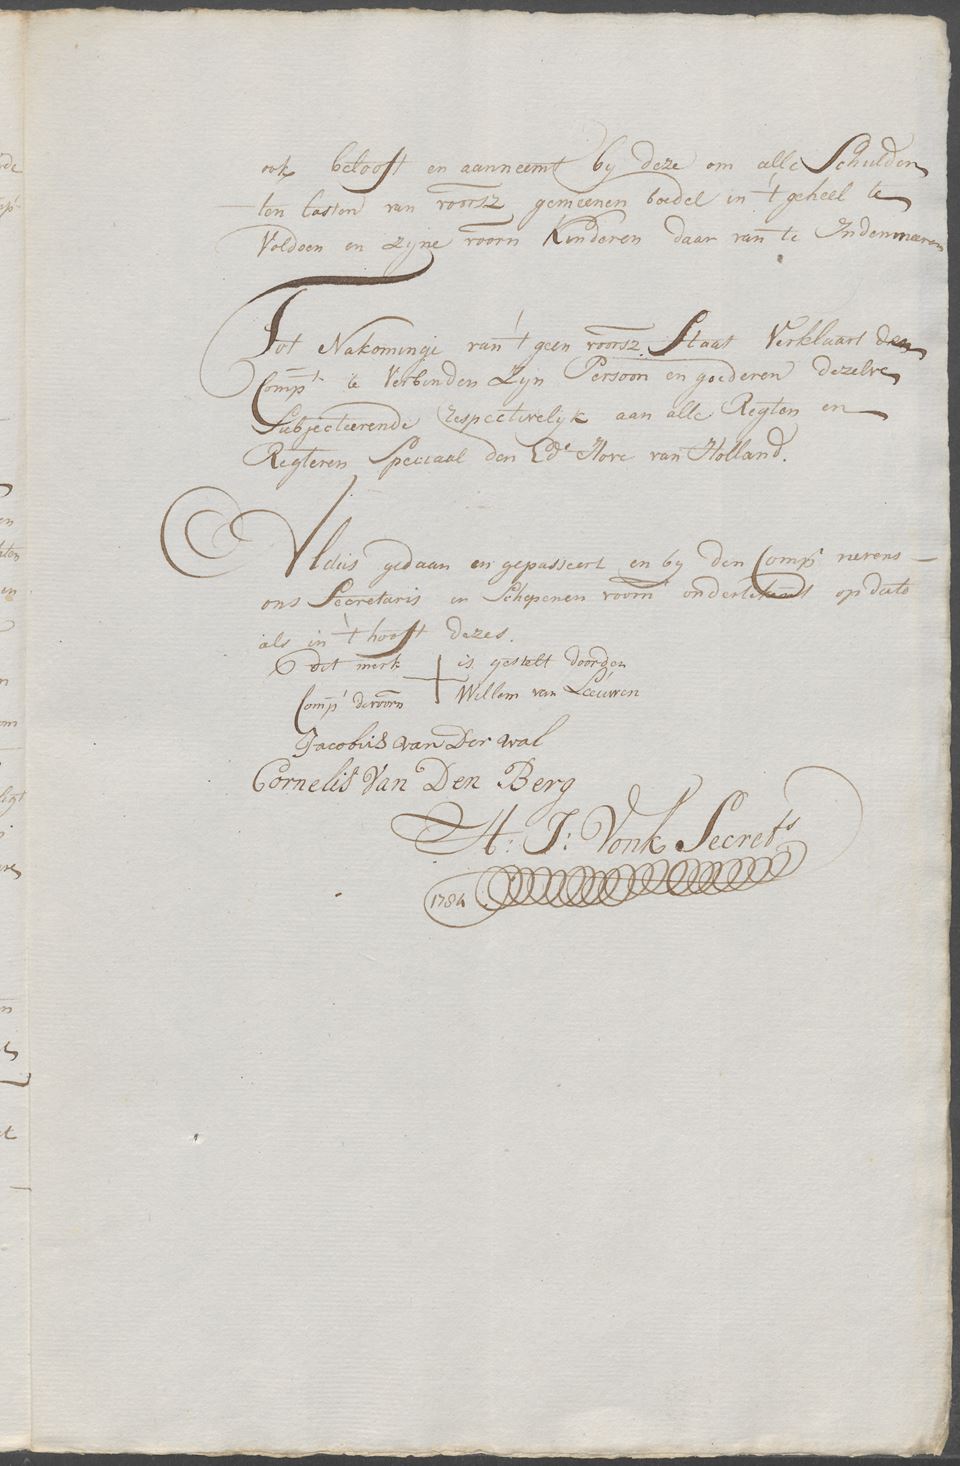 ook belooft en aanneemt by deze om alle Schulden
ten lasten van voorsz gemeenen boedel in 't geheel te
Voldoen en zyne voorn Kinderen daar van te Indemneeren
Tot Nakominge van 't geen voorsz. Staat Verklaart den
Compt te Verbinden Zyn Persoon en goederen dezelve
Subjecteerende respectivelyk aan alle Regten en
Regteren Speciaal den Ed: Hove van Holland.
Aldus gedaan en gepasseert en by den Compt nevens
ons Secretaris en Schepenen voorn ondertekent op dato
als in 't hooft dezes.
dit merk + is gestelt door den
Compt devoorn Willem van Leeuwen
Jacobus van Der wal
Cornelis Van Den Berg
H: J: Vonk Secrets
1784